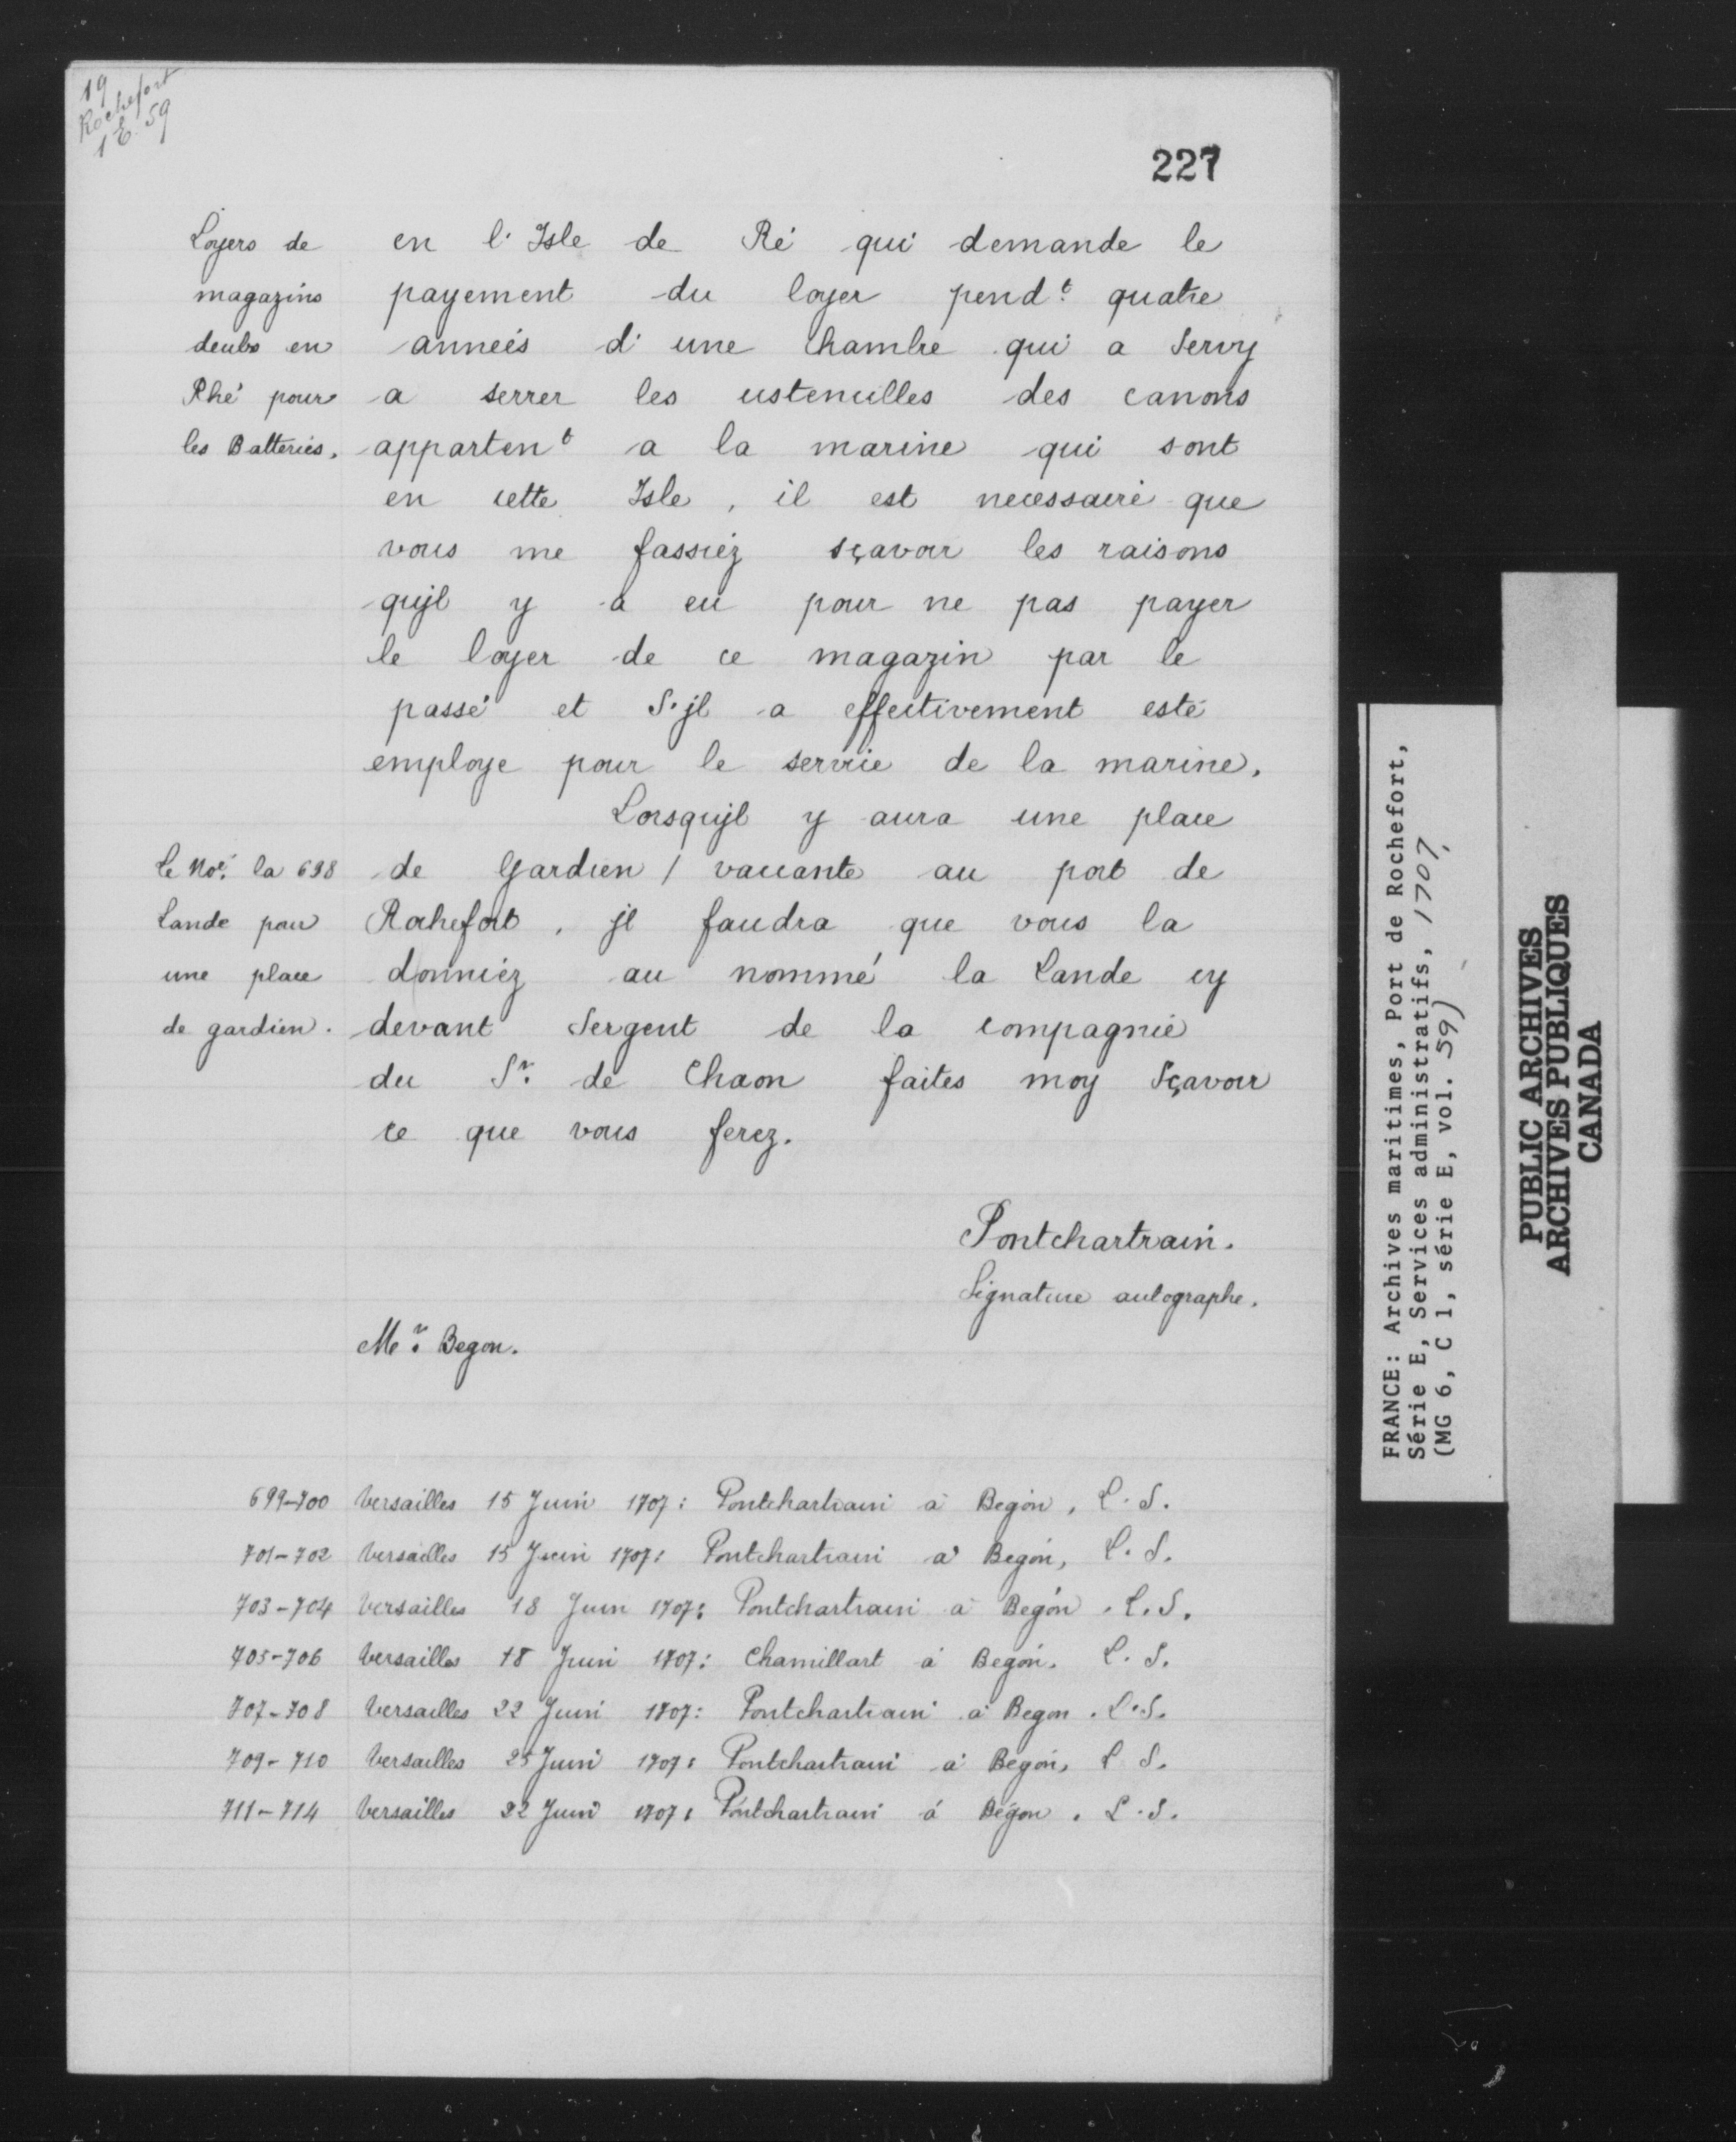 19
Rochefort
1 E. 59
227
Loyers de
magazins
deubs en
Rhé pour
les Batteries.
en l'Isle de Ré qui demande le
payement du loyer pendt. quatre
années d'une Chambre qui a Servy
a serrer les ustencilles des canons
appartent a la marine qui sont
en cette Isle, il est necessaire que
vous me fassiéz sçavoir les raisons
qujl y a eu pour ne pas payer
le loyer de ce magazin par le
passé et S'jl a effectivement esté
employe pour le service de la marine.
Lorsqujl y aura une place
Le Noé. la 698
Lande pour
une place
de gardien.
de Gardien / vaccante au port de
Rochefort, jl faudra que vous la
donniéz au nommé la Lande cy
devant Sergent de la Compagnie
du Sr. de Chaon faites moy Sçavoir
ce que vous ferez.
Pontchartrain.
Signature autographe.
Mr. Begon.
699-700 Versailles 15 Juin 1707: Pontchartrain à Begon, L. S.
701-702 Versailles 15 Juin 1707: Pontchartrain à Begon, L. S.
703-704 Versailles 18 Juin 1707: Pontchartrain à Begon. L. S.
705-706 Versailles 18 Juin 1707: Chamillart à Begon. L. S.
707-708 Versailles 22 Juin 1707: Pontchartrain à Begon. L. S.
709-710 Versailles 25 Juin 1707: Pontchartrain à Begon, L S.
711-714 Versailles 22 Juin 1707: Pontchartrain à Bégon. L. S.
FRANCE: Archives maritimes, Port de Rochefort,
Série E, Services administratifs, 1707,
(MG 6, C 1, série E, vol. 59)
PUBLIC ARCHIVES
ARCHIVES PUBLIQUES
CANADA